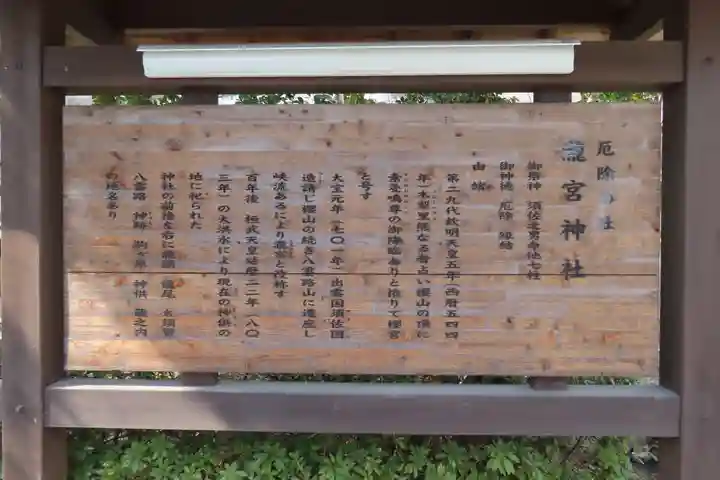 厄除の社
瀧宮神社
御祭神 須佐之男命他七柱
御神徳 厄除 縁結
由緒
第二九代欽明天皇五年(西暦五四四
年)木梨里隈なる者占い櫻山の頂に
素戔嗚尊の御降臨ありと悟りて櫻宮
と号す
大宝元年(七〇一年)出雲国須佐国
造請じ櫻山の続き八雲路山に遷座し
峡流あるにより瀧宮と改称す
百年後 桓武天皇延暦二二年(八〇
三年)の大洪水により現在の神供の
地に祀られた
神社の前後左右に瀧頭 瀧尾 水頭
八雲路 神跡 駒ヶ原 神供 蔵之内
の地名あり